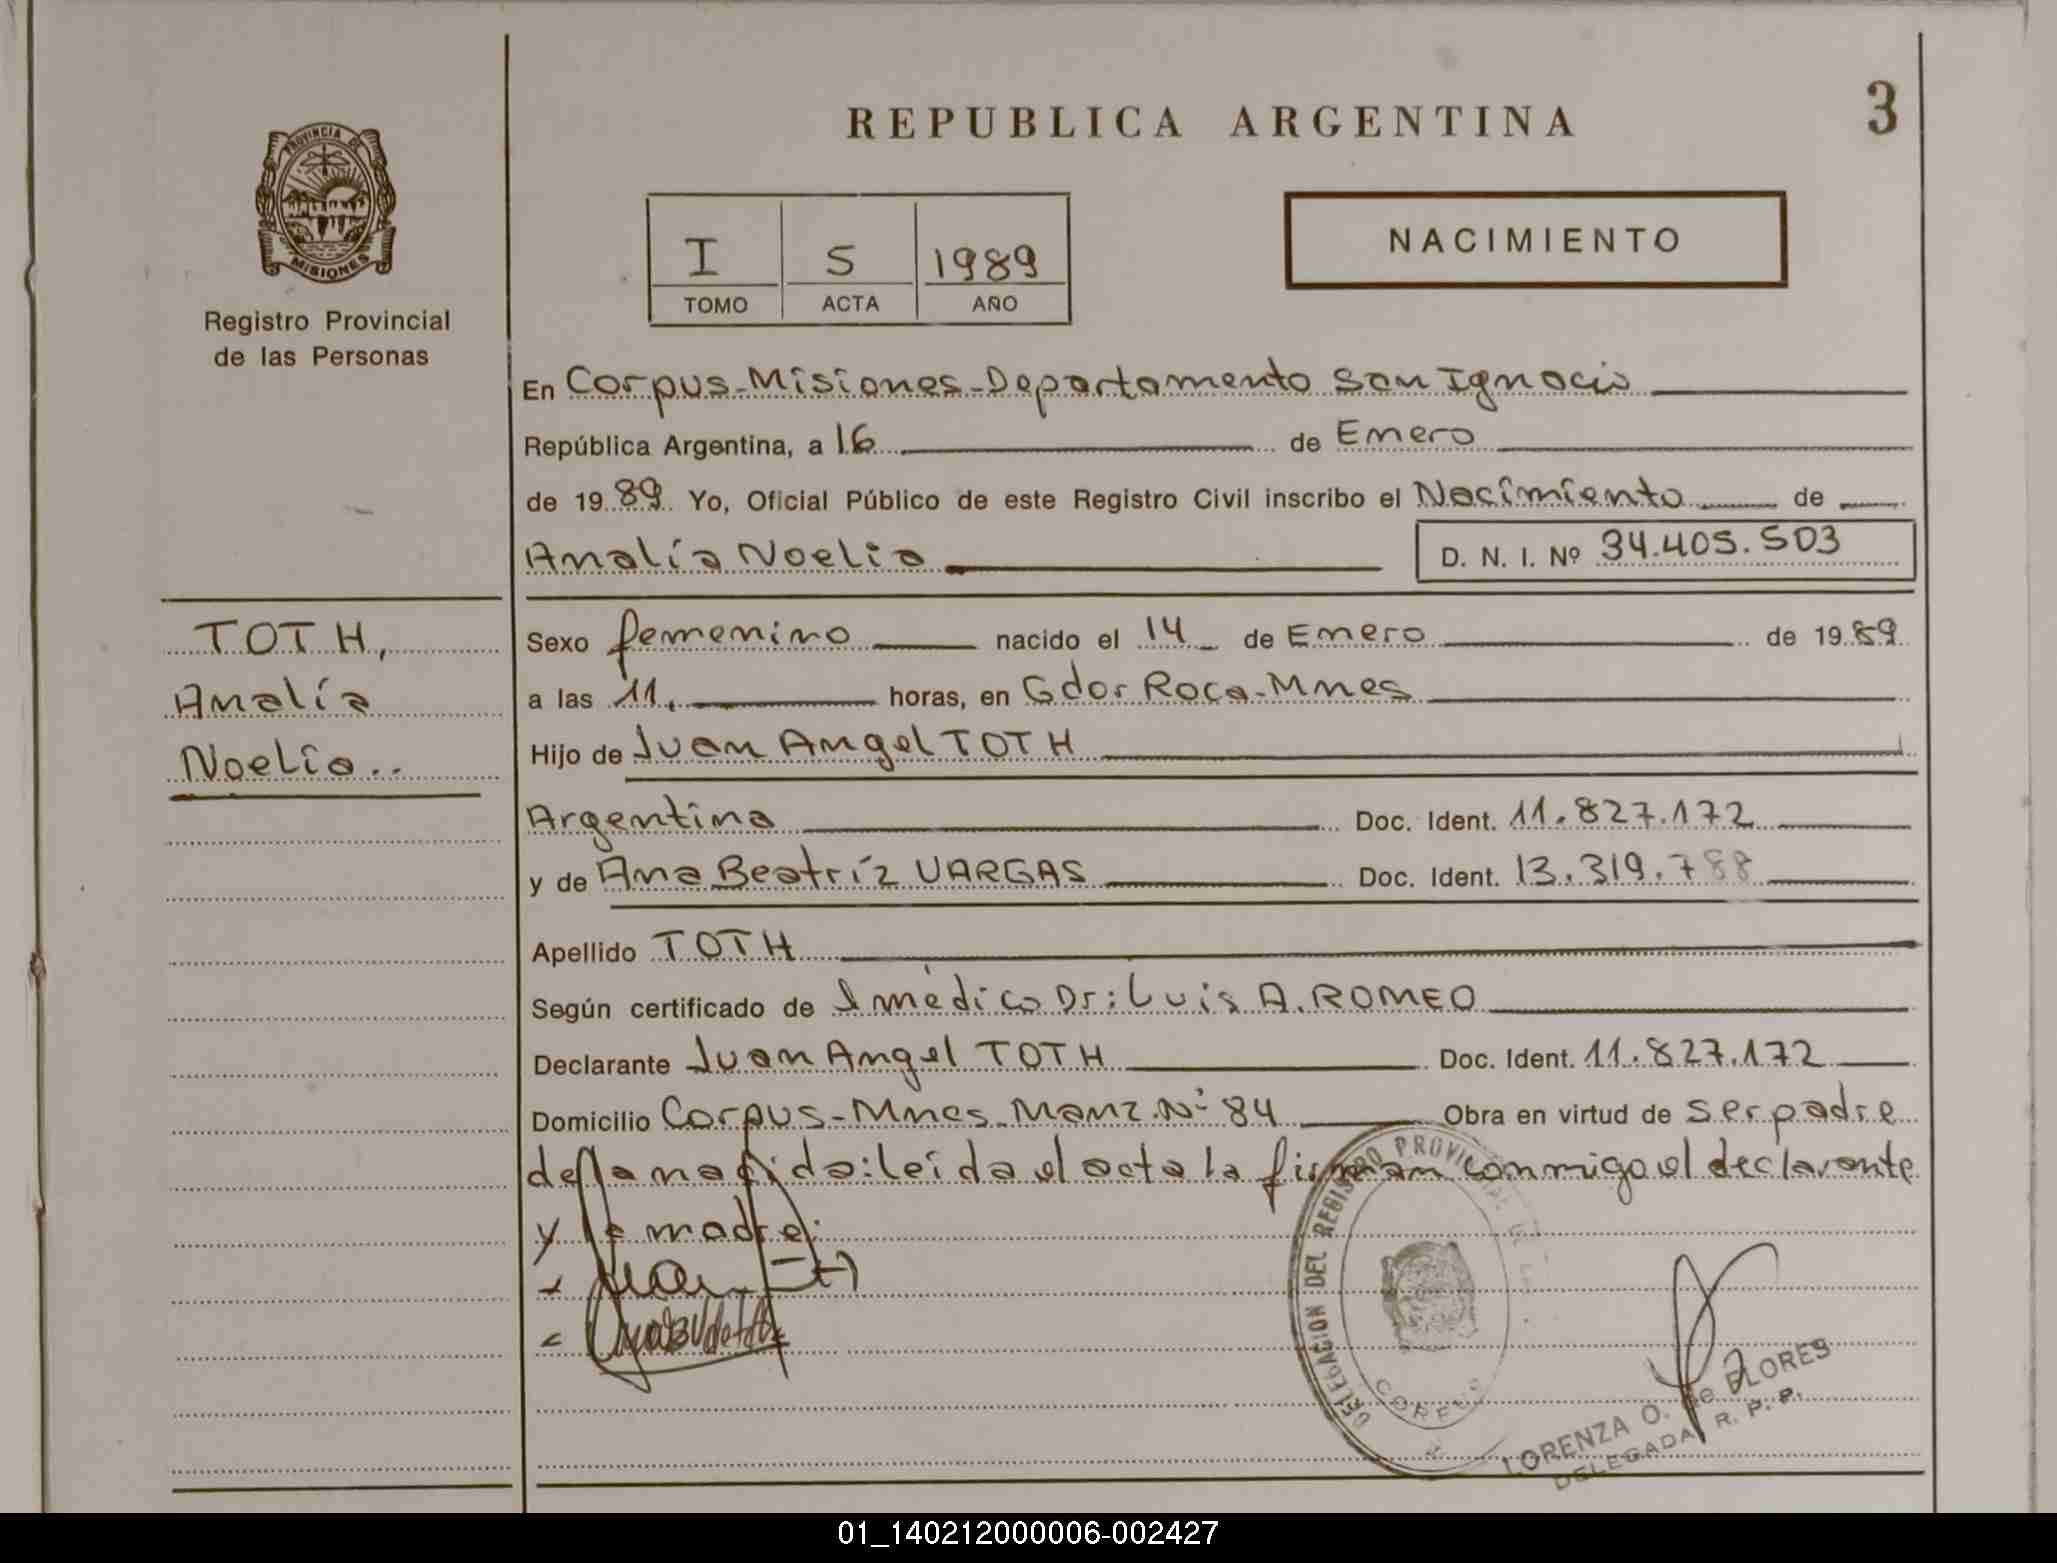 REPUBLICA ARGENTINA
3
PROVINCIA DE
MISIONES
Registro Provincial
de las Personas
I 5 1989
TOMO ACTA AÑO
NACIMIENTO
En Corpus-Misiones-Departamento San Ignacio
República Argentina, a 16 de Enero
de 1989 Yo, Oficial Público de este Registro Civil inscribo el Nacimiento de
Analía Noelia
D. N. I. Nº 34.405.503
TOTH,
Analía
Noelia..
Sexo femenino nacido el 14 de Enero de 1989
a las 11, horas, en Gdor Roca-Mnes
Hijo de Juan Angel TOTH
Argentina Doc. Ident. 11.827.172
y de Ana Beatríz VARGAS Doc. Ident. 13.319.788
Apellido TOTH
Según certificado de l médico Dr: Luis A. ROMEO
Declarante Juan Angel TOTH Doc. Ident. 11.827.172
Domicilio Corpus-Mnes-Manz.Nº 84 Obra en virtud de ser padre
de la nacida: leída el acta la firman conmigo el declarante
y la madre:
DELEGACION DEL REGISTRO PROVINCIAL DE
CORPUS
LORENZA O. de FLORES
DELEGADA R. P. P.
01_140212000006-002427